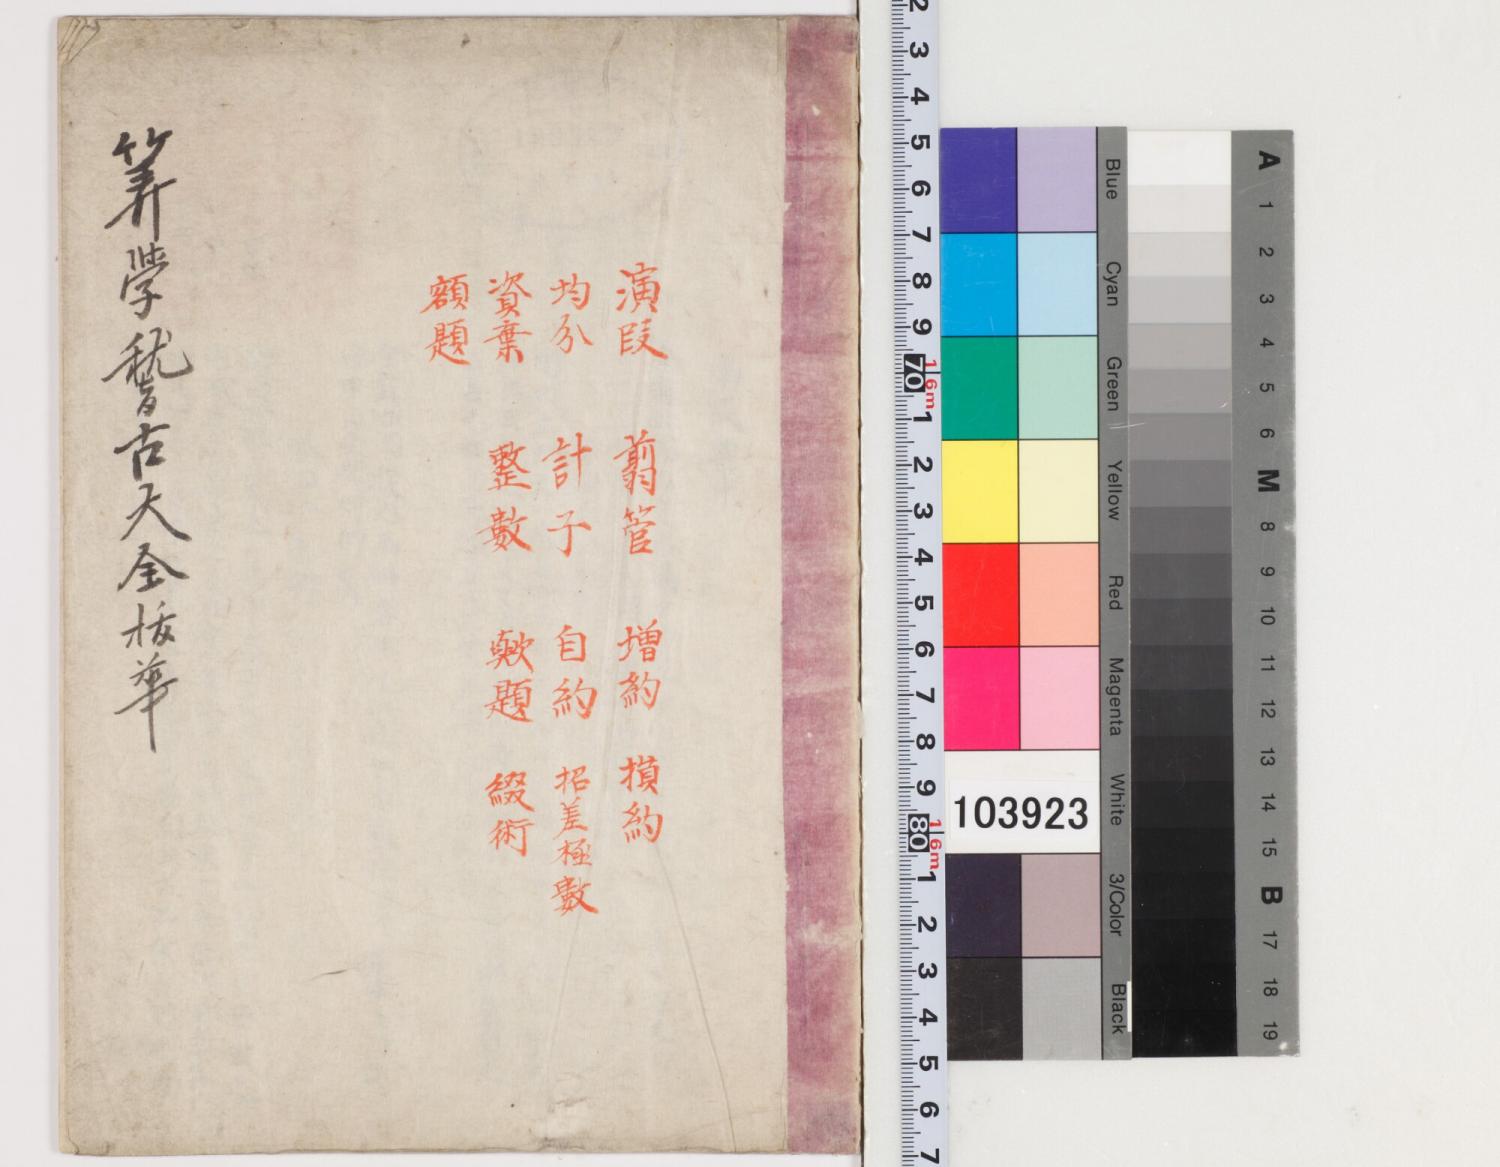 演段 翦管 増約 損約
均分 計子 自約 招差極數
資棄 整數 歟題 綴術
額題
算学稽古大全抜華
2 3 4 5 6 7 8 9 70 1 2 3 4 5 6 7 8 9 80 1 2 3 4 5 6 7
1.6m
1.6m
Blue
Cyan
Green
Yellow
Red
Magenta
White
3/Color
Black
103923
A 1 2 3 4 5 6 M 8 9 10 11 12 13 14 15 B 17 18 19